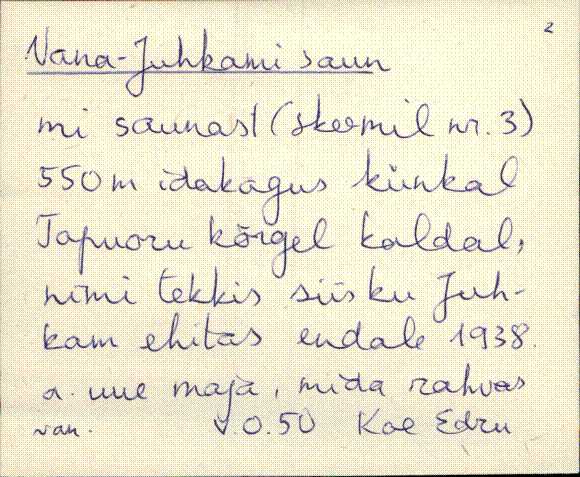 2
Vana-Juhkami saun
mi saunast (skeemil nr. 3)
550 m idakagus künkal
Tapuoru kõrgel kaldal,
nimi tekkis siis ku Juh-
kam ehitas endale 1938.
a. uue maja, mida rahvas
van. v. 0.50 Koe Edru